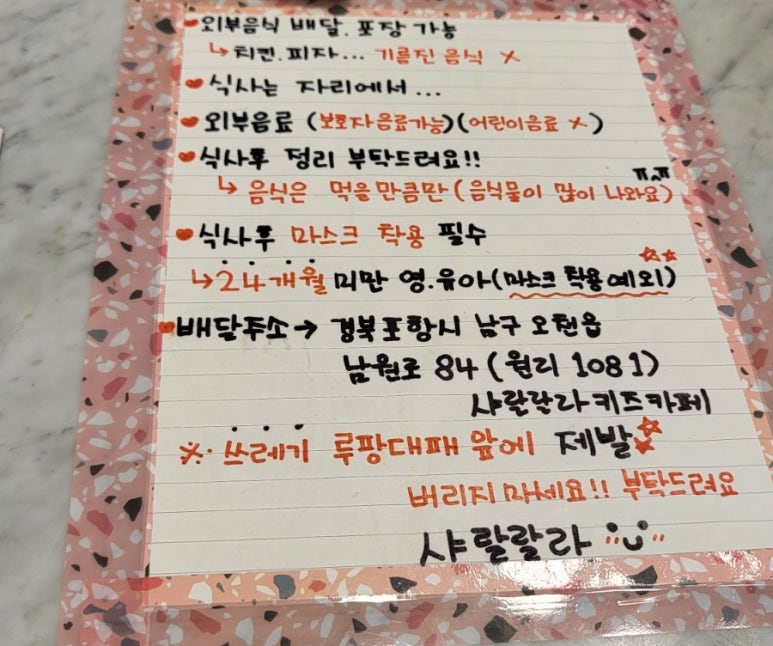 외부음식 배달. 포장 가능
↳ 치킨. 피자... 기름진 음식 ×
식사는 자리에서...
외부음료 (보호자음료가능)(어린이음료 ×)
식사후 정리 부탁드려요!!
↳ 음식은 먹을만큼만 (음식물이 많이 나와요) ㅠㅠ
식사후 마스크 착용 필수
↳ 24개월 미만 영.유아(마스크 착용 예외)
배달주소 → 경북 포항시 남구 오천읍
남원로 84 (원리 1081)
샤랄랄라키즈카페
※ 쓰레기 루팡대패 앞에 제발
버리지마세요!! 부탁드려요
샤랄랄라